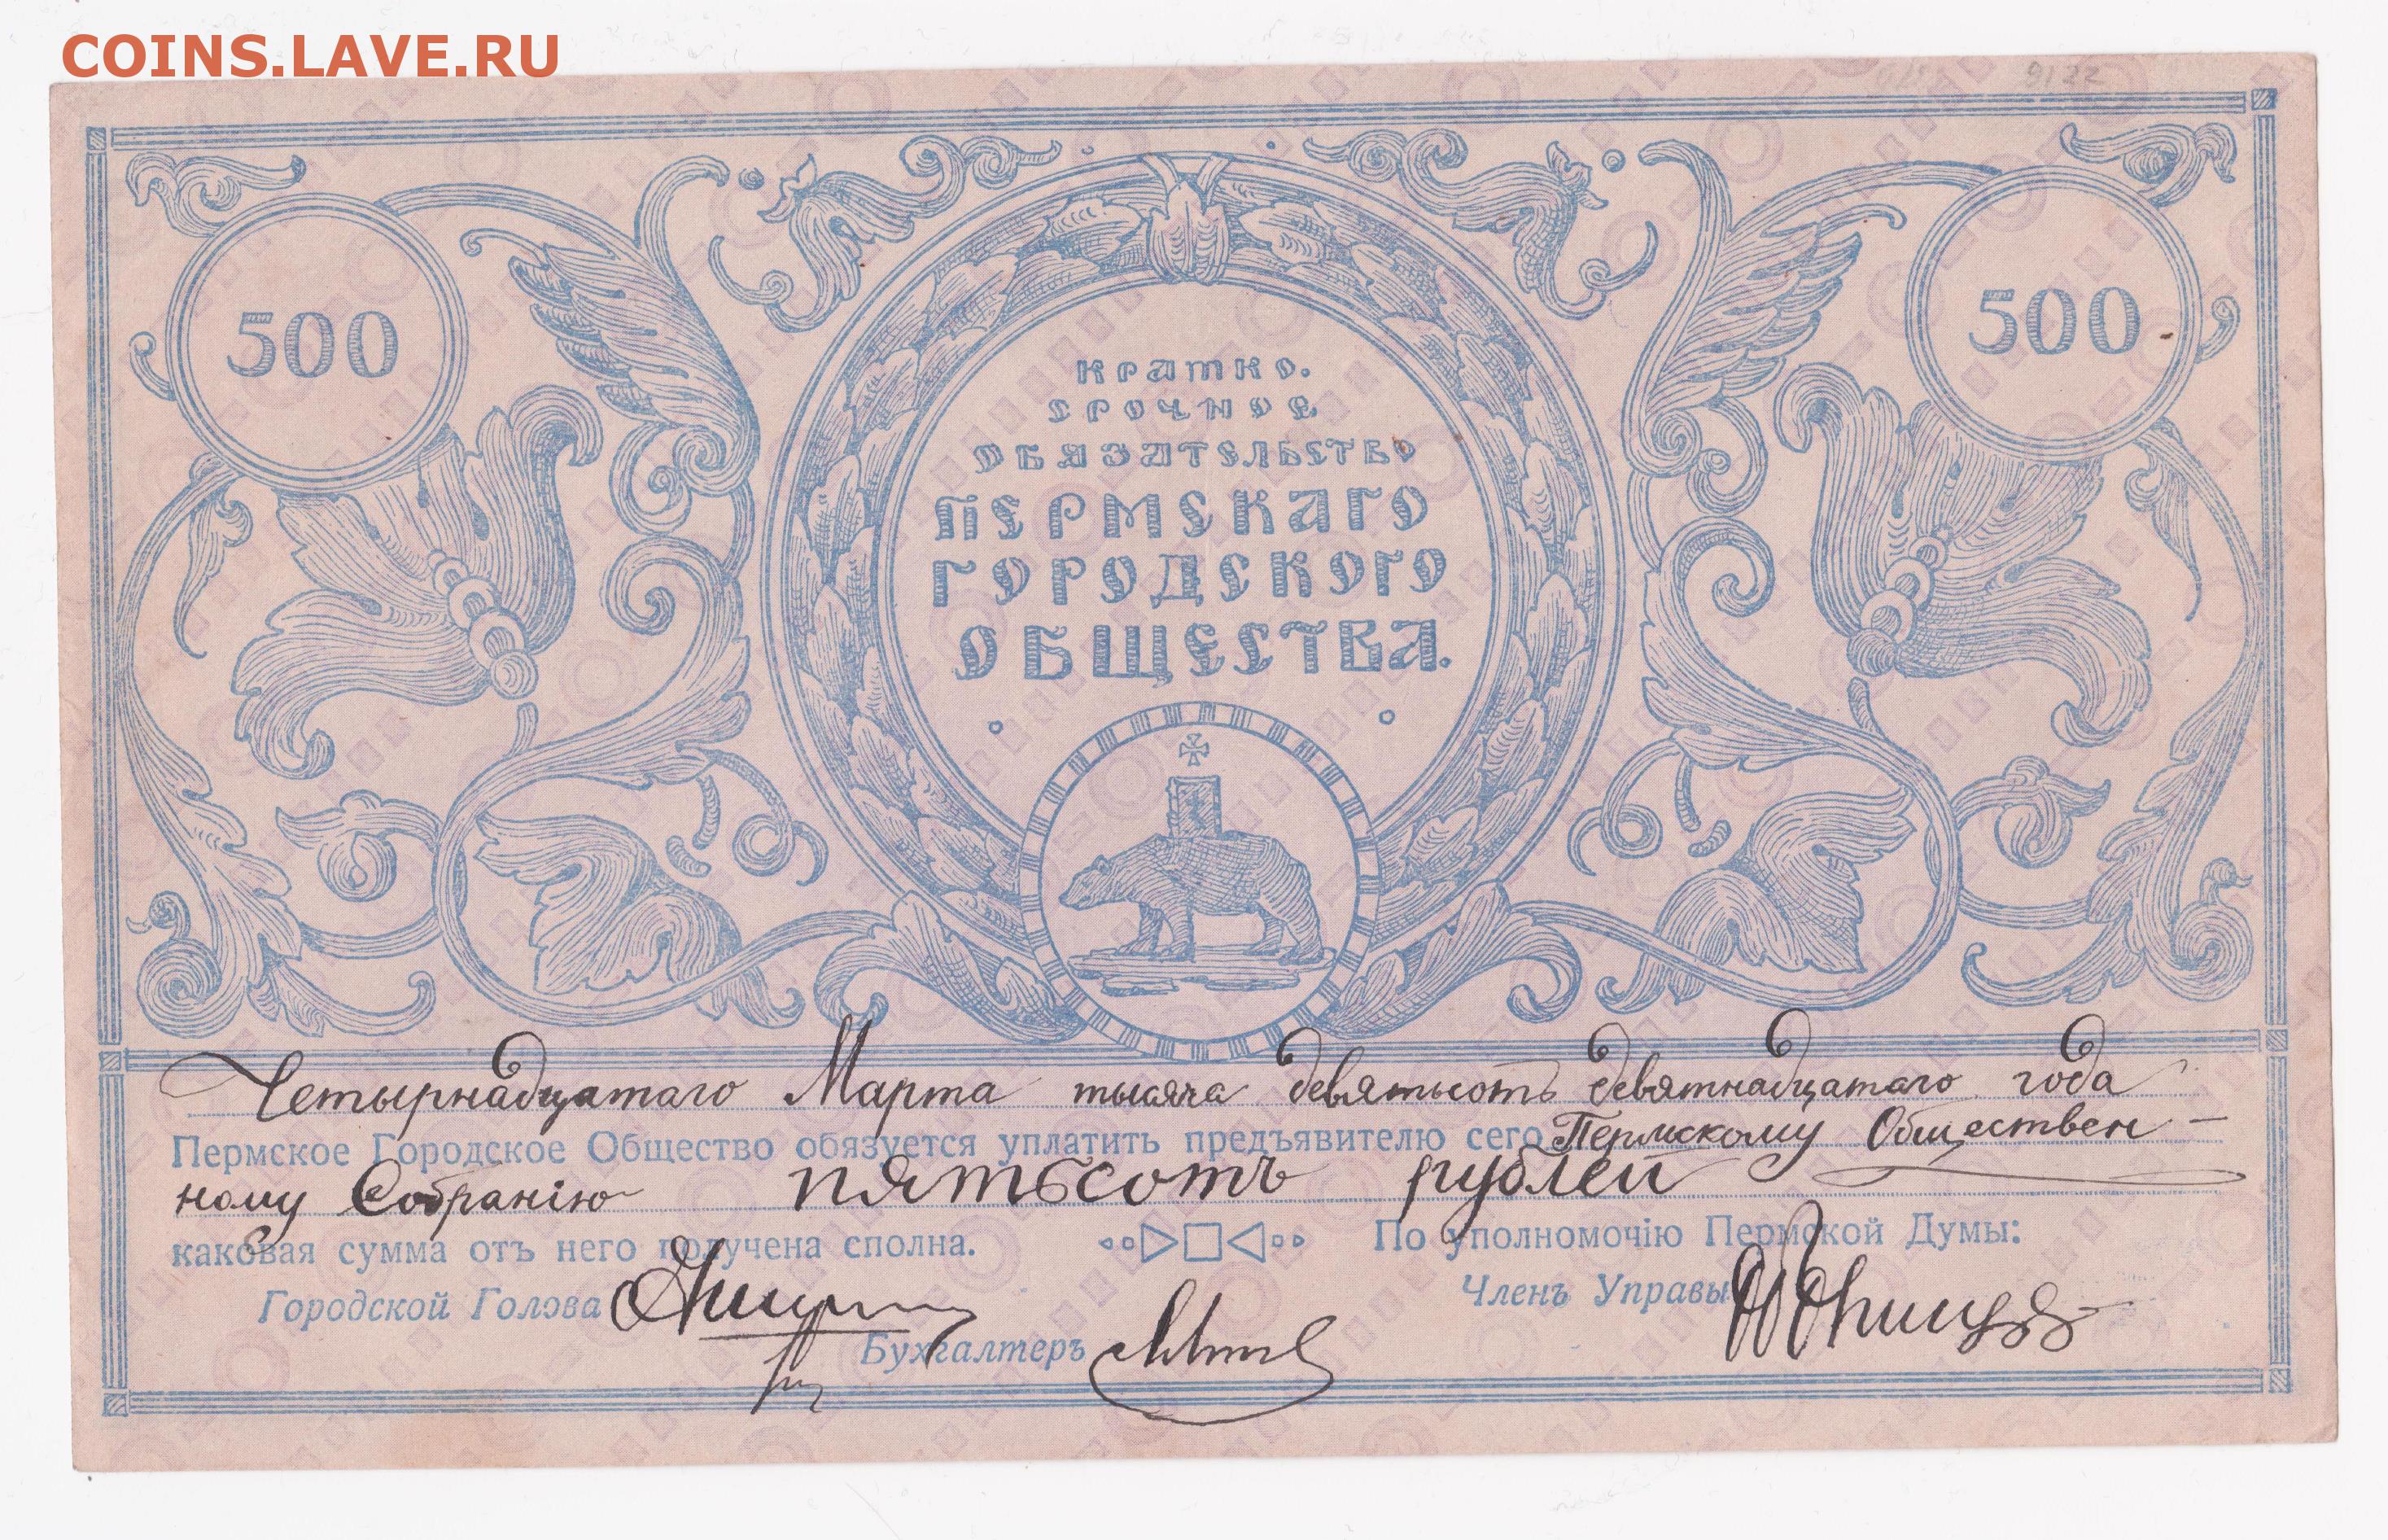 COINS.LAVE.RU
9122
500
500
КРАТКО.
СРОЧНОЕ
ОБЯЗАТЕЛЬСТВО
ПЕРМСКАГО
ГОРОДСКОГО
ОБЩЕСТВА.
Четырнадцатаго Марта тысяча девятьсотъ девятнадцатаго года
Пермское Городское Общество обязуется уплатить предъявителю сего Пермскому Обществен-
ному Собранію пятьсотъ рублей
каковая сумма отъ него получена сполна. По уполномочію Пермской Думы:
Городской Голова Членъ Управы
Бухгалтеръ